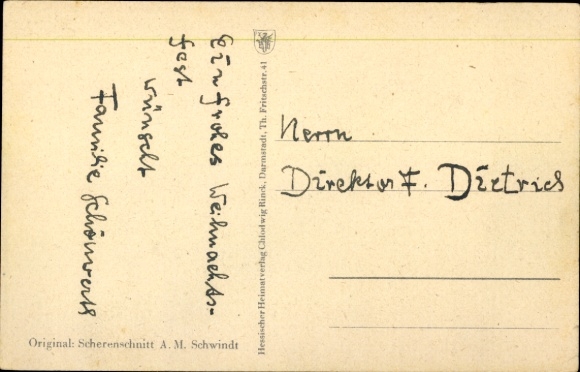 Ein frohes Weihnachts-
fest
wünscht
Familie Schönwerth
Hessischer Heimatverlag Chlodwig Rinck, Darmstadt, Th. Fritschstr. 41
Herrn
Direktor F. Dietrich
Original: Scherenschnitt A. M. Schwindt